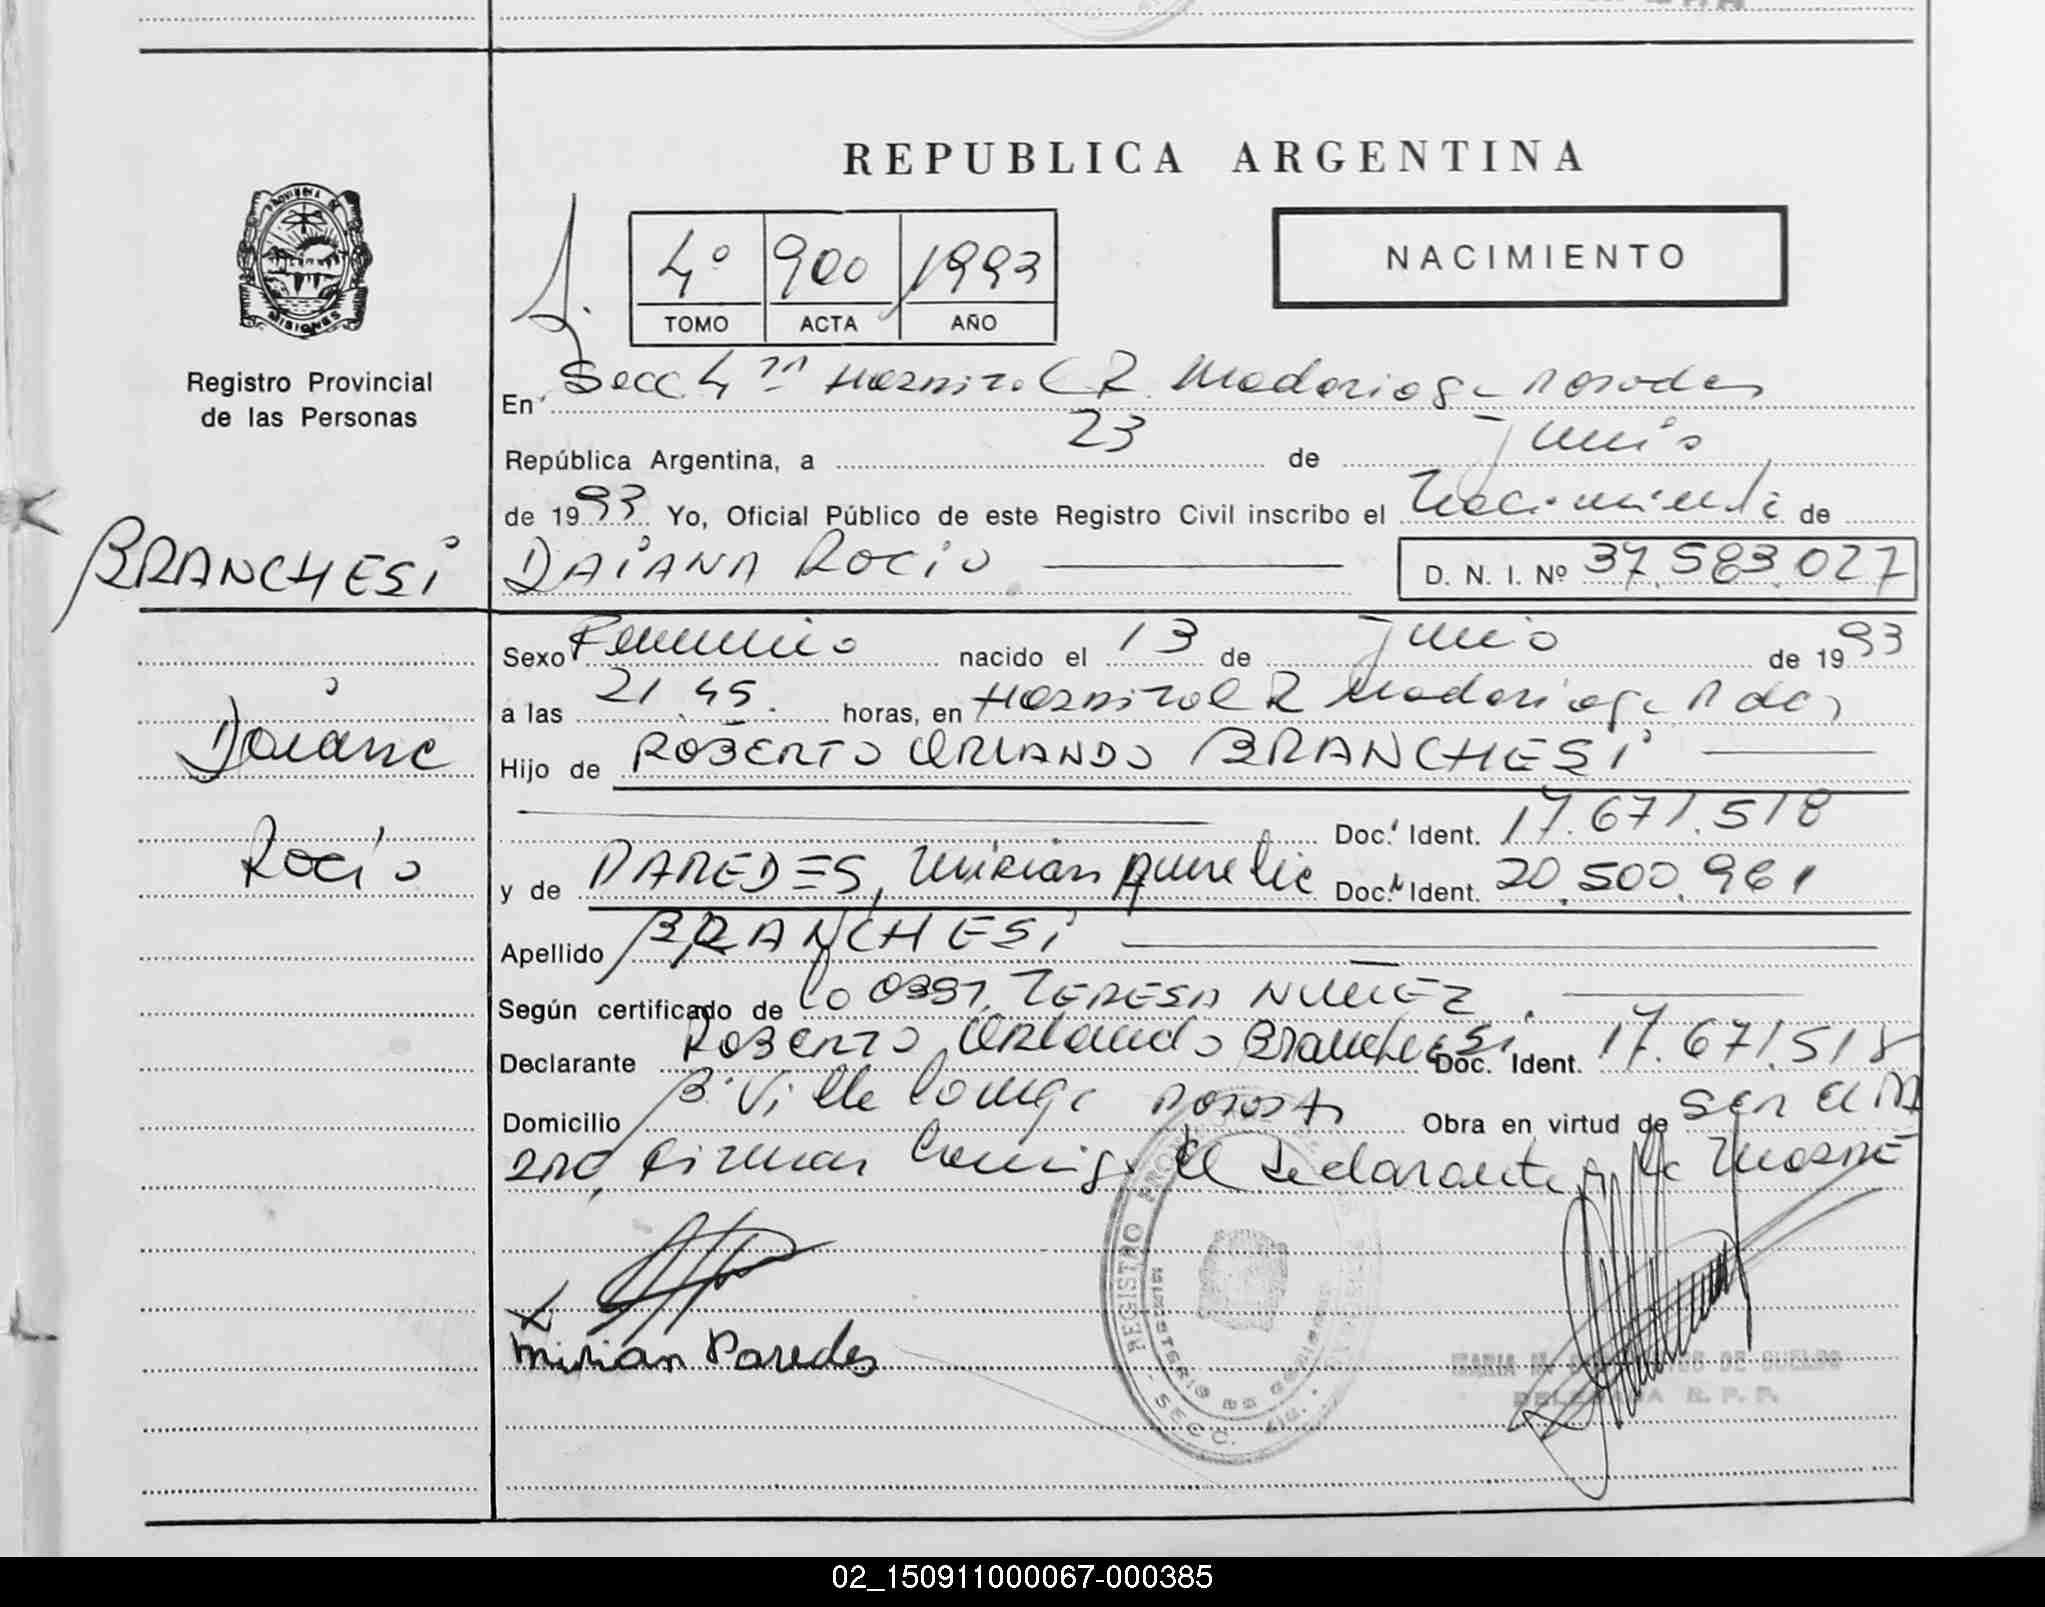 REPUBLICA ARGENTINA
PROVINCIA DE
MISIONES
Registro Provincial
de las Personas
4º 900 1993
TOMO ACTA AÑO
NACIMIENTO
En Secc 4ta Hospital R. Madariaga Posadas
República Argentina, a 23 de junio
de 1993 Yo, Oficial Público de este Registro Civil inscribo el Nacimiento de
BRANCHESi
DAiANA ROCiO D. N. I. Nº 37.583.027
Sexo Femenino nacido el 13 de junio de 1993
a las 21.45. horas, en Hospital R Madariaga Pdas
Daiana
Hijo de ROBERTO ORLANDO BRANCHESi
Doc. Ident. 17.671.518
Rocio
y de PAREDES, Mirian Aurelia Doc. Ident. 20.500.961
Apellido BRANCHESi
Según certificado de la TERESA NUÑEZ
Declarante ROBERTO ORLANDO BRANCHESi Doc. Ident. 17.671.518
Domicilio B. Villa Posadas Obra en virtud de ser el PA
DRE, firman conmigo el declarante y la MADRE
Mirian Paredes
REGISTRO
SECC.
MARIA DE SUELDO
DELEGADA R. P. P.
02_150911000067-000385